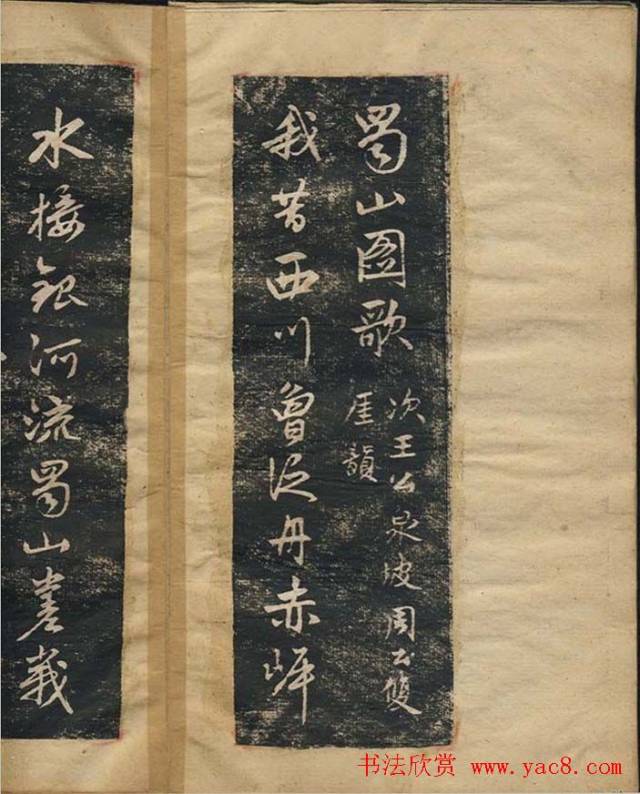 蜀山图歌
次王公泉坡周公双
崖韵
我昔西川曾泛舟赤岸
水接银河流蜀山嵳峩
书法欣赏 www.yac8.com